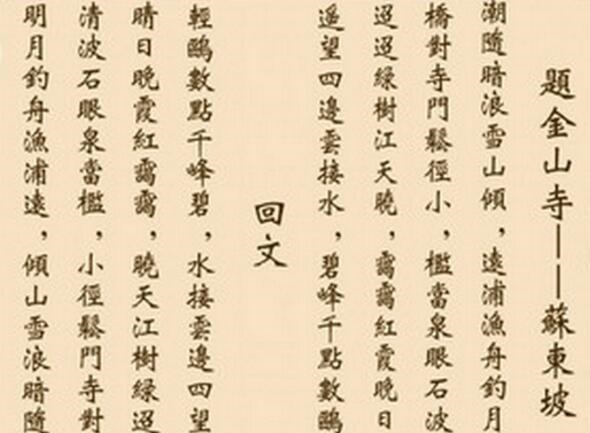 題金山寺——蘇東坡
潮隨暗浪雪山傾，遠浦漁舟釣月
橋對寺門鬆徑小，檻當泉眼石波
迢迢綠樹江天曉，靄靄紅霞晚日
遙望四邊雲接水，碧峰千點數鷗
回文
輕鷗數點千峰碧，水接雲邊四望
晴日晚霞紅靄靄，曉天江樹綠迢
清波石眼泉當檻，小徑鬆門寺對
明月釣舟漁浦遠，傾山雪浪暗隨